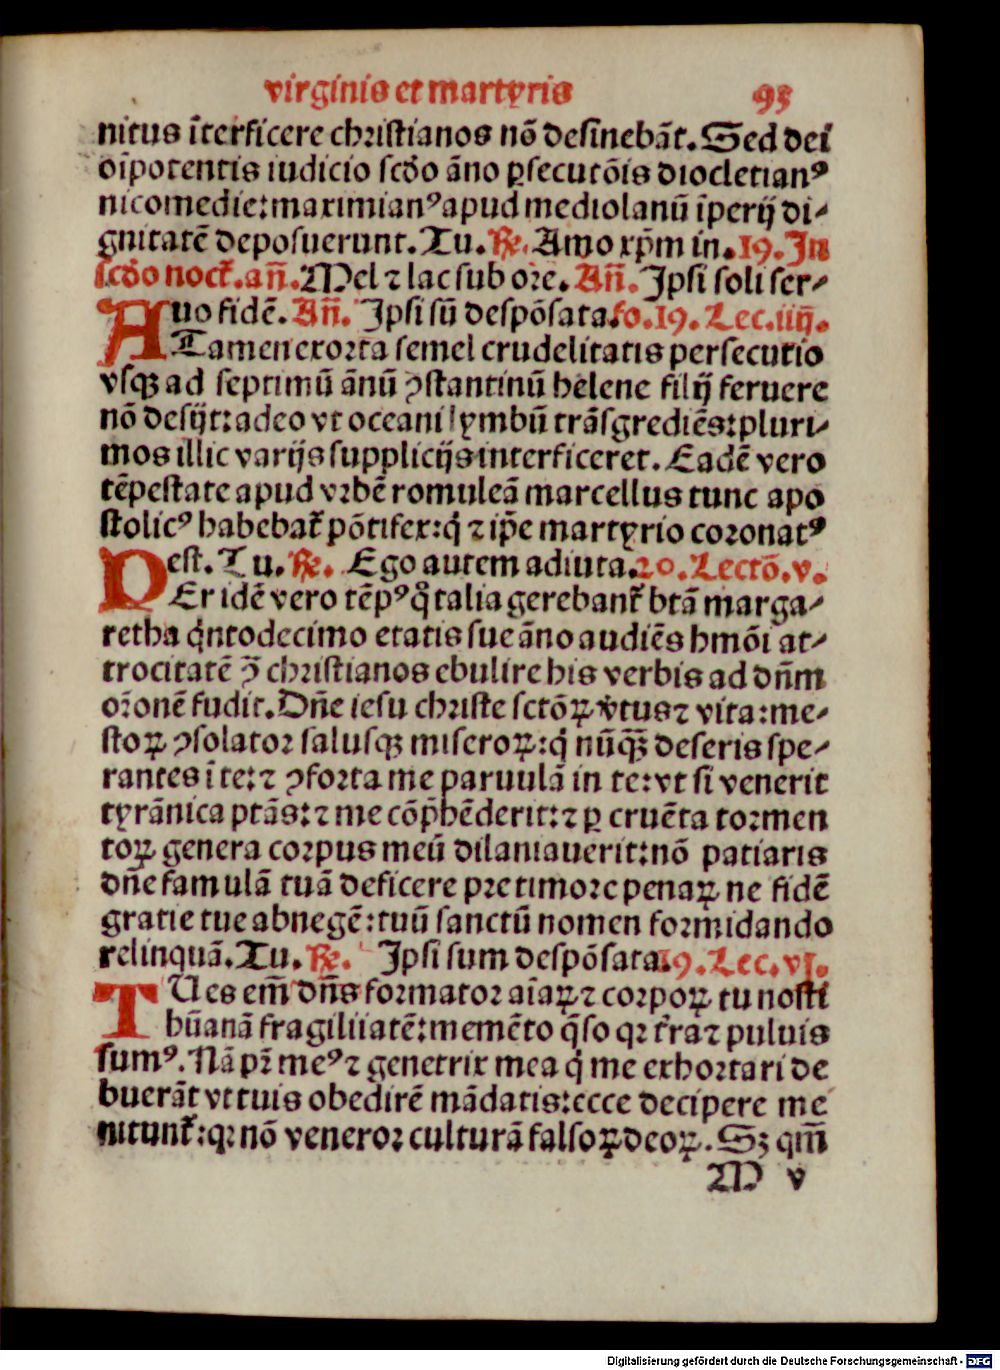 virginis et martyris 93
nitus īterficere christianos nō desinebāt. Sed dei
oīpotentis iudicio scđo āno ꝑsecutōis diocletianꝰ
nicomedie: maximianꝰ apud mediolanū īperij di⸗
gnitatē deposuerunt. Tu. ℞. Amo xp̄m in. 19. In
scđo noct̄. an̄. Mel ⁊ lac sub ore. An̄. Ipsi soli ser⸗
uo fidē. An̄. Ipsi sū despōsata. fo. 19. Lec. iiij.
ATamen exorta semel crudelitatis persecutio
vsqꝫ ad septimū ānū ꝯstantinū helene filij feruere
nō desijt: adeo vt oceani lymbū trāsgrediēs: pluri⸗
mos illic varijs supplicijs interficeret. Eadē vero
tēpestate apud vrbē romuleā marcellus tunc apo
stolicꝰ habebat̄ pōtifex: q̇ ⁊ ip̄e martyrio coronatꝰ
est. Tu. ℞. Ego autem adiuta. 20. Lectō. v.
PEr idē vero tēpꝰ q̊ talia gerebant̄ btā marga⸗
retha q̇ntodecimo etatis sue āno audiēs hmōi at⸗
trocitatē ꝯ̄ christianos ebulire his verbis ad dn̄m
orōnē fudit. Dn̄e iesu christe sctōꝝ v̇tus ⁊ vita: me⸗
stoꝝ ꝯsolator salusqꝫ miseroꝝ: q̇ nūqꝫ̄ deseris spe⸗
rantes ī te: ⁊ ꝯforta me paruulā in te: vt si venerit
tyrānica ptās: ⁊ me cōp̄hēderit: ⁊ ꝑ cruēta tormen
toꝝ genera corpus meū dilaniauerit: nō patiaris
dn̄e famulā tuā deficere pre timore penaꝝ ne fidē
gratie tue abnegē: tuū sanctū nomen formidando
relinquā. Tu. ℞. Ipsi sum despōsata. 19. Lec. vj.
TU es em̄ dn̄s formator aīaꝝ ⁊ corpoꝝ tu nosti
hūanā fragilitatē: memēto q̄so qꝛ t̄ra ⁊ puluis
sumꝰ. Nā pr̄ meꝰ ⁊ genetrix mea q̇ me exhortari de
buerāt vt tuis obedirē mādatis: ecce decipere me
nitunt̄: qꝛ nō veneror culturā falsoꝝ deoꝝ. Sꝫ qm̄
M v
Digitalisierung gefördert durch die Deutsche Forschungsgemeinschaft - DFG